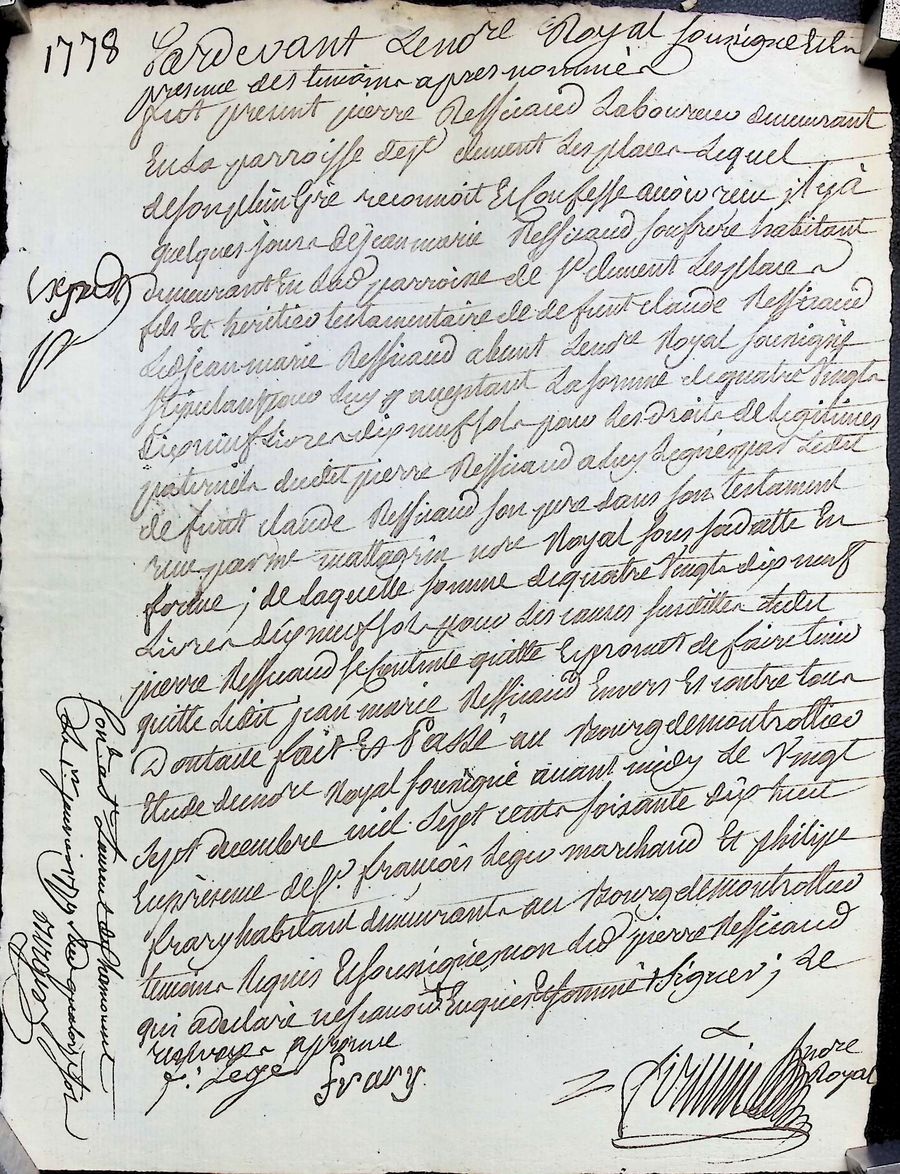 1778
Pardevant Lenore Royal sousigne Et En
presence des temoins apres nommés
fut present pierre Ressicaud Laboureur demeurant
En La parroisse de st clement Les places Lequel
de son plein Gré reconnoit Et Confesse avoir receu il y à
quelques jours de jean marie Ressicaud son frere habitant
demeurant en lad parroisse de st clement Les places
fils Et heritier testamentaire de defunt claude Ressicaud
Led jean marie Ressicaud absent Lenore Royal sousigné
stipulant pour Luy Et acceptant La somme de quatre Vingt
dix neuf Livres dix neuf sols pour Les droits de Legitimes
paternels dudit pierre Ressicaud a Luy Legués par Ledit
defunt claude Ressicaud son pere dans son testament
receu par me mattagrin nore Royal sous sa datte En
forme ; de laquelle somme de quatre Vingts dix neuf
Livres dix neuf sols pour Les causes susdittes Ledit
pierre Ressicaud se Contente quitte Et promet de faire tenir
quitte Ledit jean marie Ressicaud Envers Et contre tous
Dont acte fait Et Passé au Bourg de montrottier
Etude de nore Royal sousigné avant midy Le Vingt
sept decembre mil sept cents soixante dix huit
En presence de sr. françois Lege marchand Et philipe
frary habitants demeurants au Bourg de montrottier
temoins Requis Et sousignés non Led pierre Ressicaud
qui a declaré ne scavoir Enquis Et sommé signer ; Le
renvoy approuvé
f. Lege
frary
nore
Royal
Expedié
Con.lé a st Laurent de chamousset
Le 1er janvier 1779 Reçu